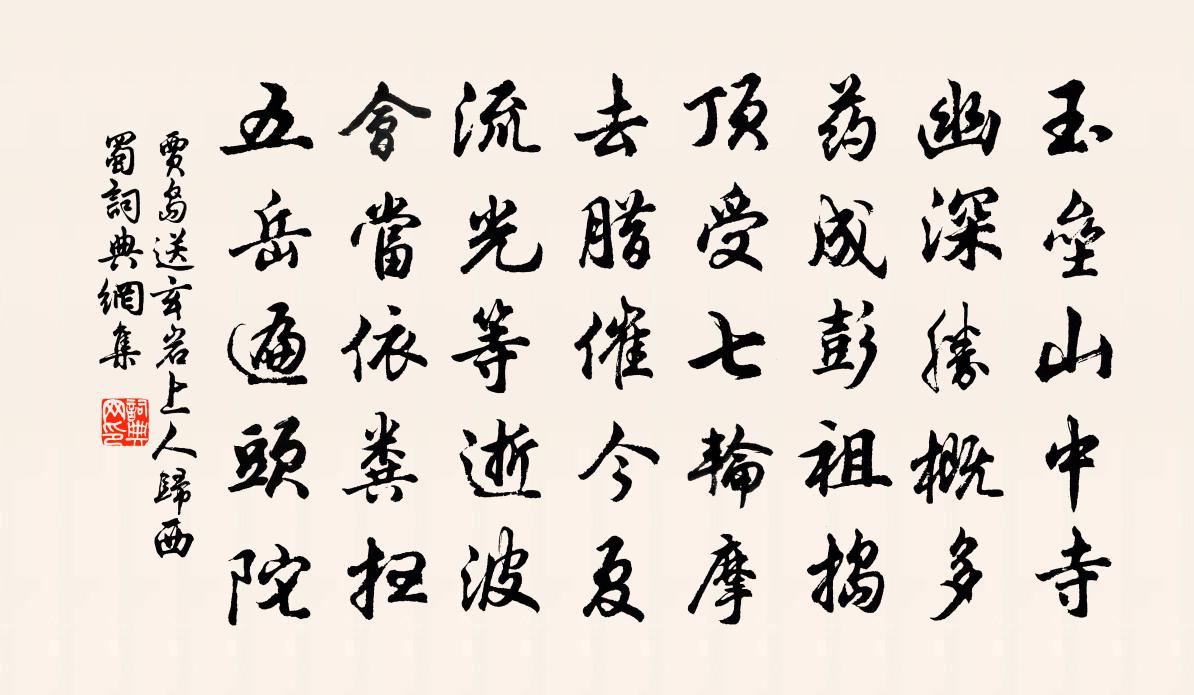 玉壘山中寺
幽深勝概多
药成彭祖搗
頂受七輪摩
去腊催今夏
流光等逝波
會當依糞扫
五岳遍頭陀
賈島送玄岩上人歸西
蜀詞典網集
詞典
网印